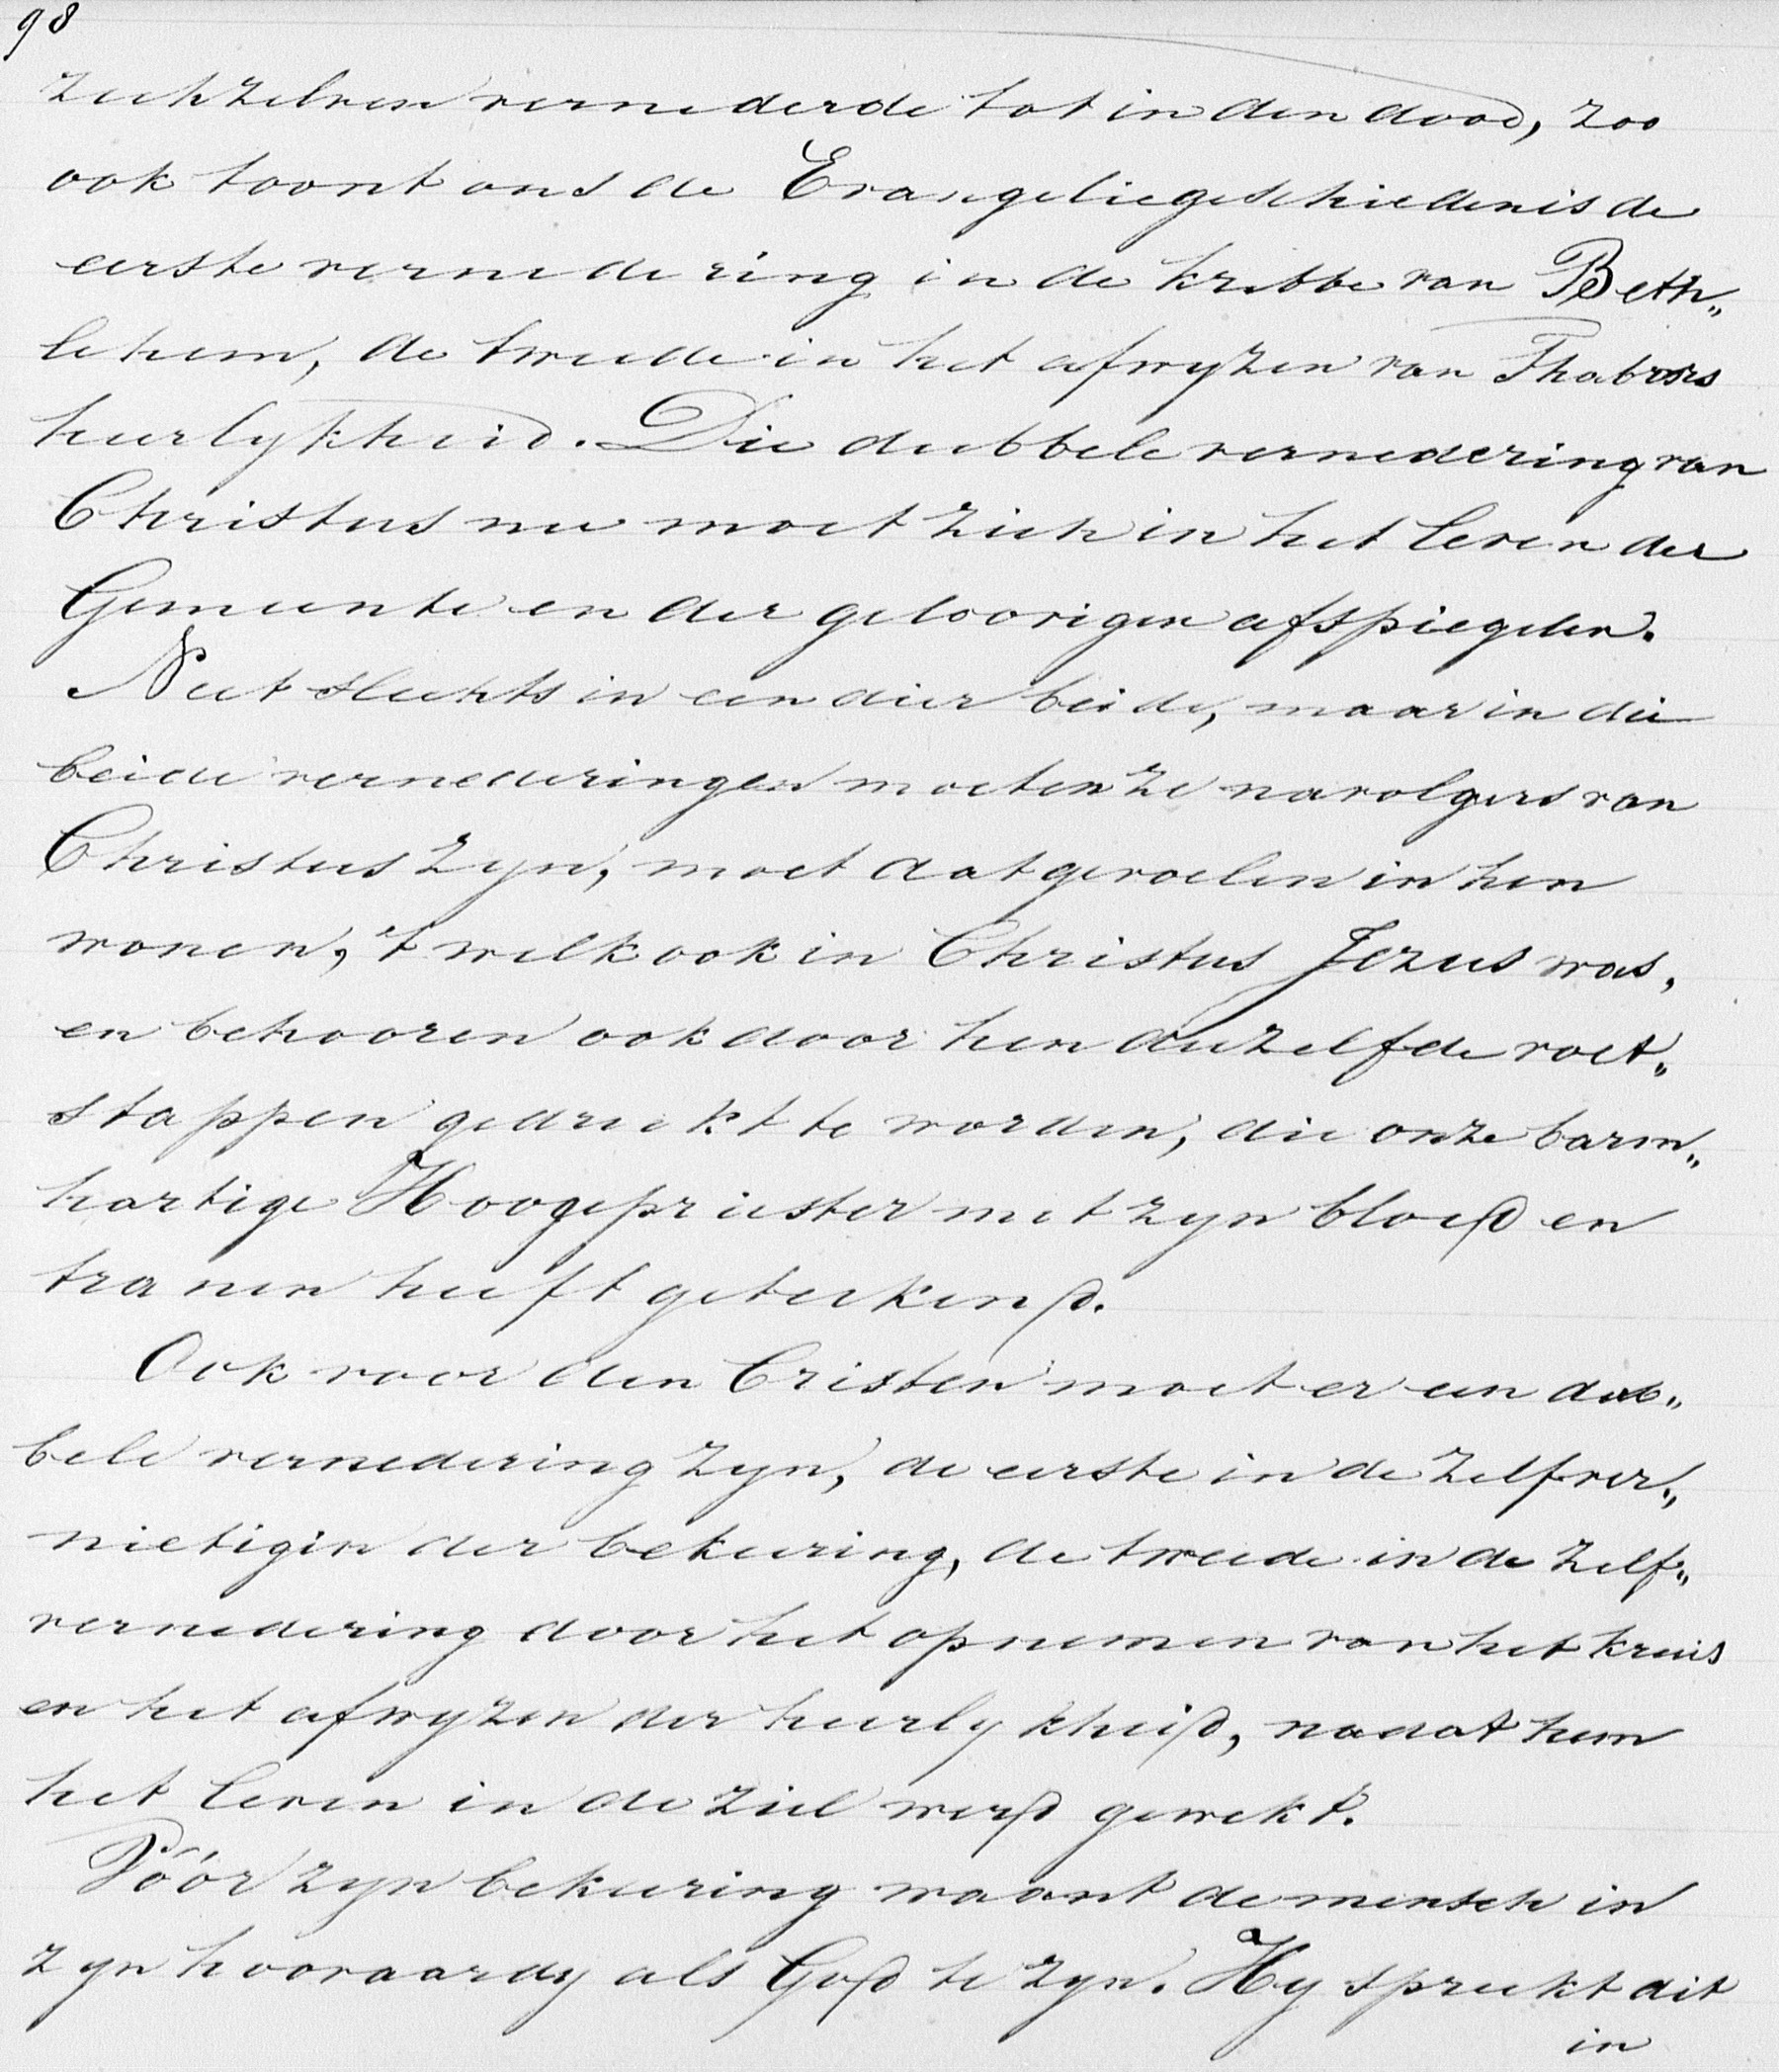 98
zichzelven vernederde tot in den dood, zoo
ook toont ons de Evangeliegeschiedenis de
eerste vernedering in de kribbe van Beth„
lehem, de tweede in het afwyzen van Thabors
heerlykheid. Die dubbele vernedering van
Christus nu moet zich in het leven der
Gemeente en der geloovigen afspiegelen.
Niet slechts in een dier beide, maar in die
beide vernederingen moeten ze navolgers van
Christus zyn, moet dat gevoelen in hen
wonen, 't welk ook in Christus Jezus was,
en behooren ook door hen diezelfde voet„
stappen gedrukt te worden, die onze barm„
hartige Hoogepriester met zyn bloed en
tranen heeft geteekend.
Ook voor den Cristen moet er een dub„
bele vernedering zyn, de eerste in de zelfver„
nietigin der bekeering, de tweede in de zelf„
vernedering door het opnemen van het kruis
en het afwyzen der heerlykheid, nadat hem
het leven in de ziel werd gewekt.
Vóór zyn bekeering waant de mensch in
zyn hoovaardy als God te zyn. Hy spreekt dit
in